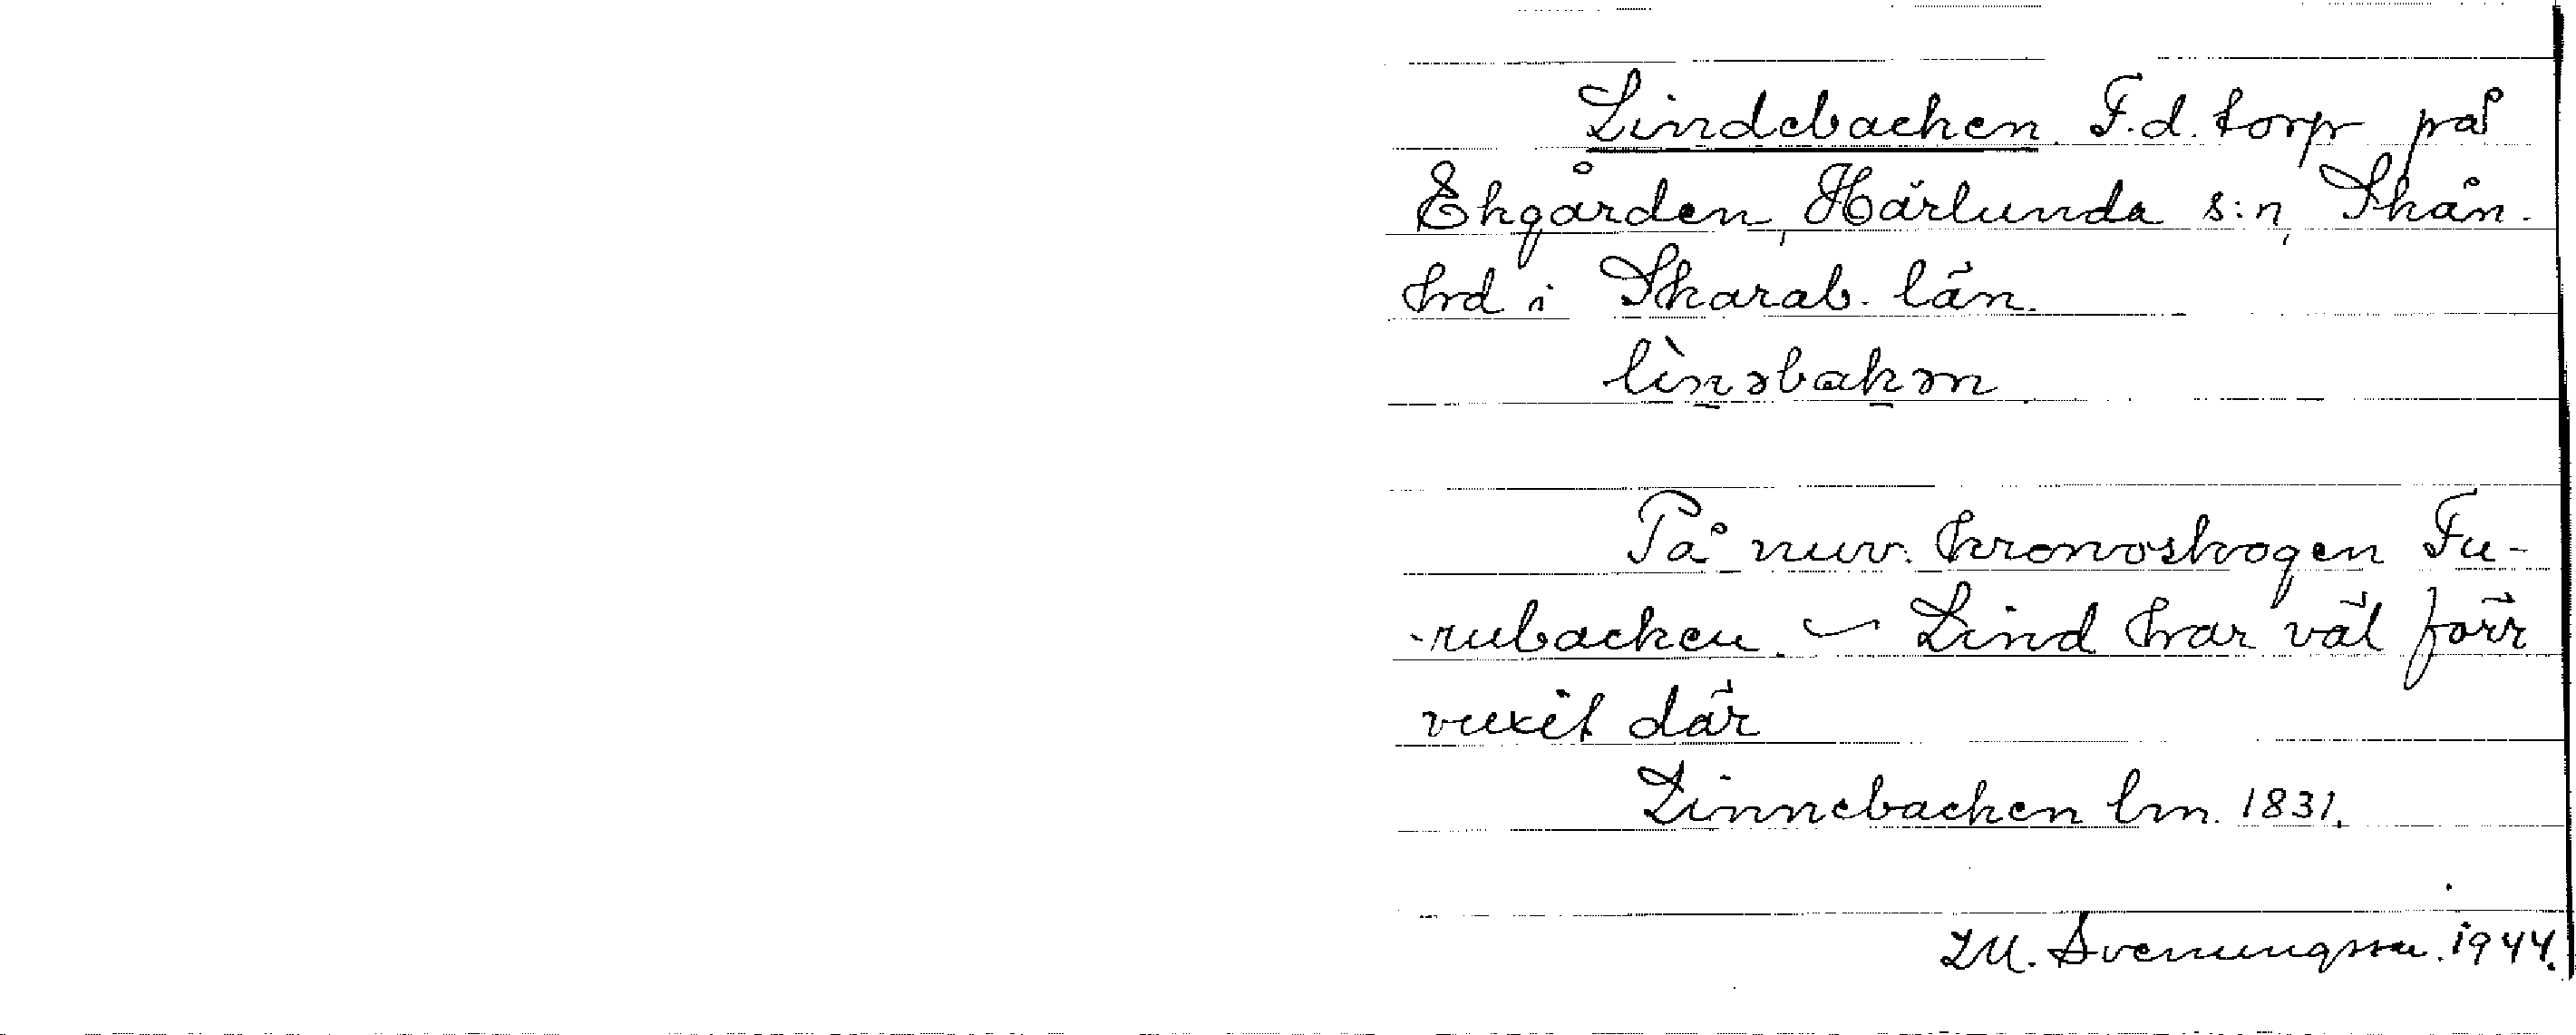 Lindebacken. F.d. torp på
Ekgården, Härlunda s:n, Skån.
hrd i Skarab. län.
lìnəbakən
På nuv. kronoskogen Fu-
rubacken. – Lind har väl förr
vuxit där
Linnebacken lm. 1831.
Svenungsson. 1944.